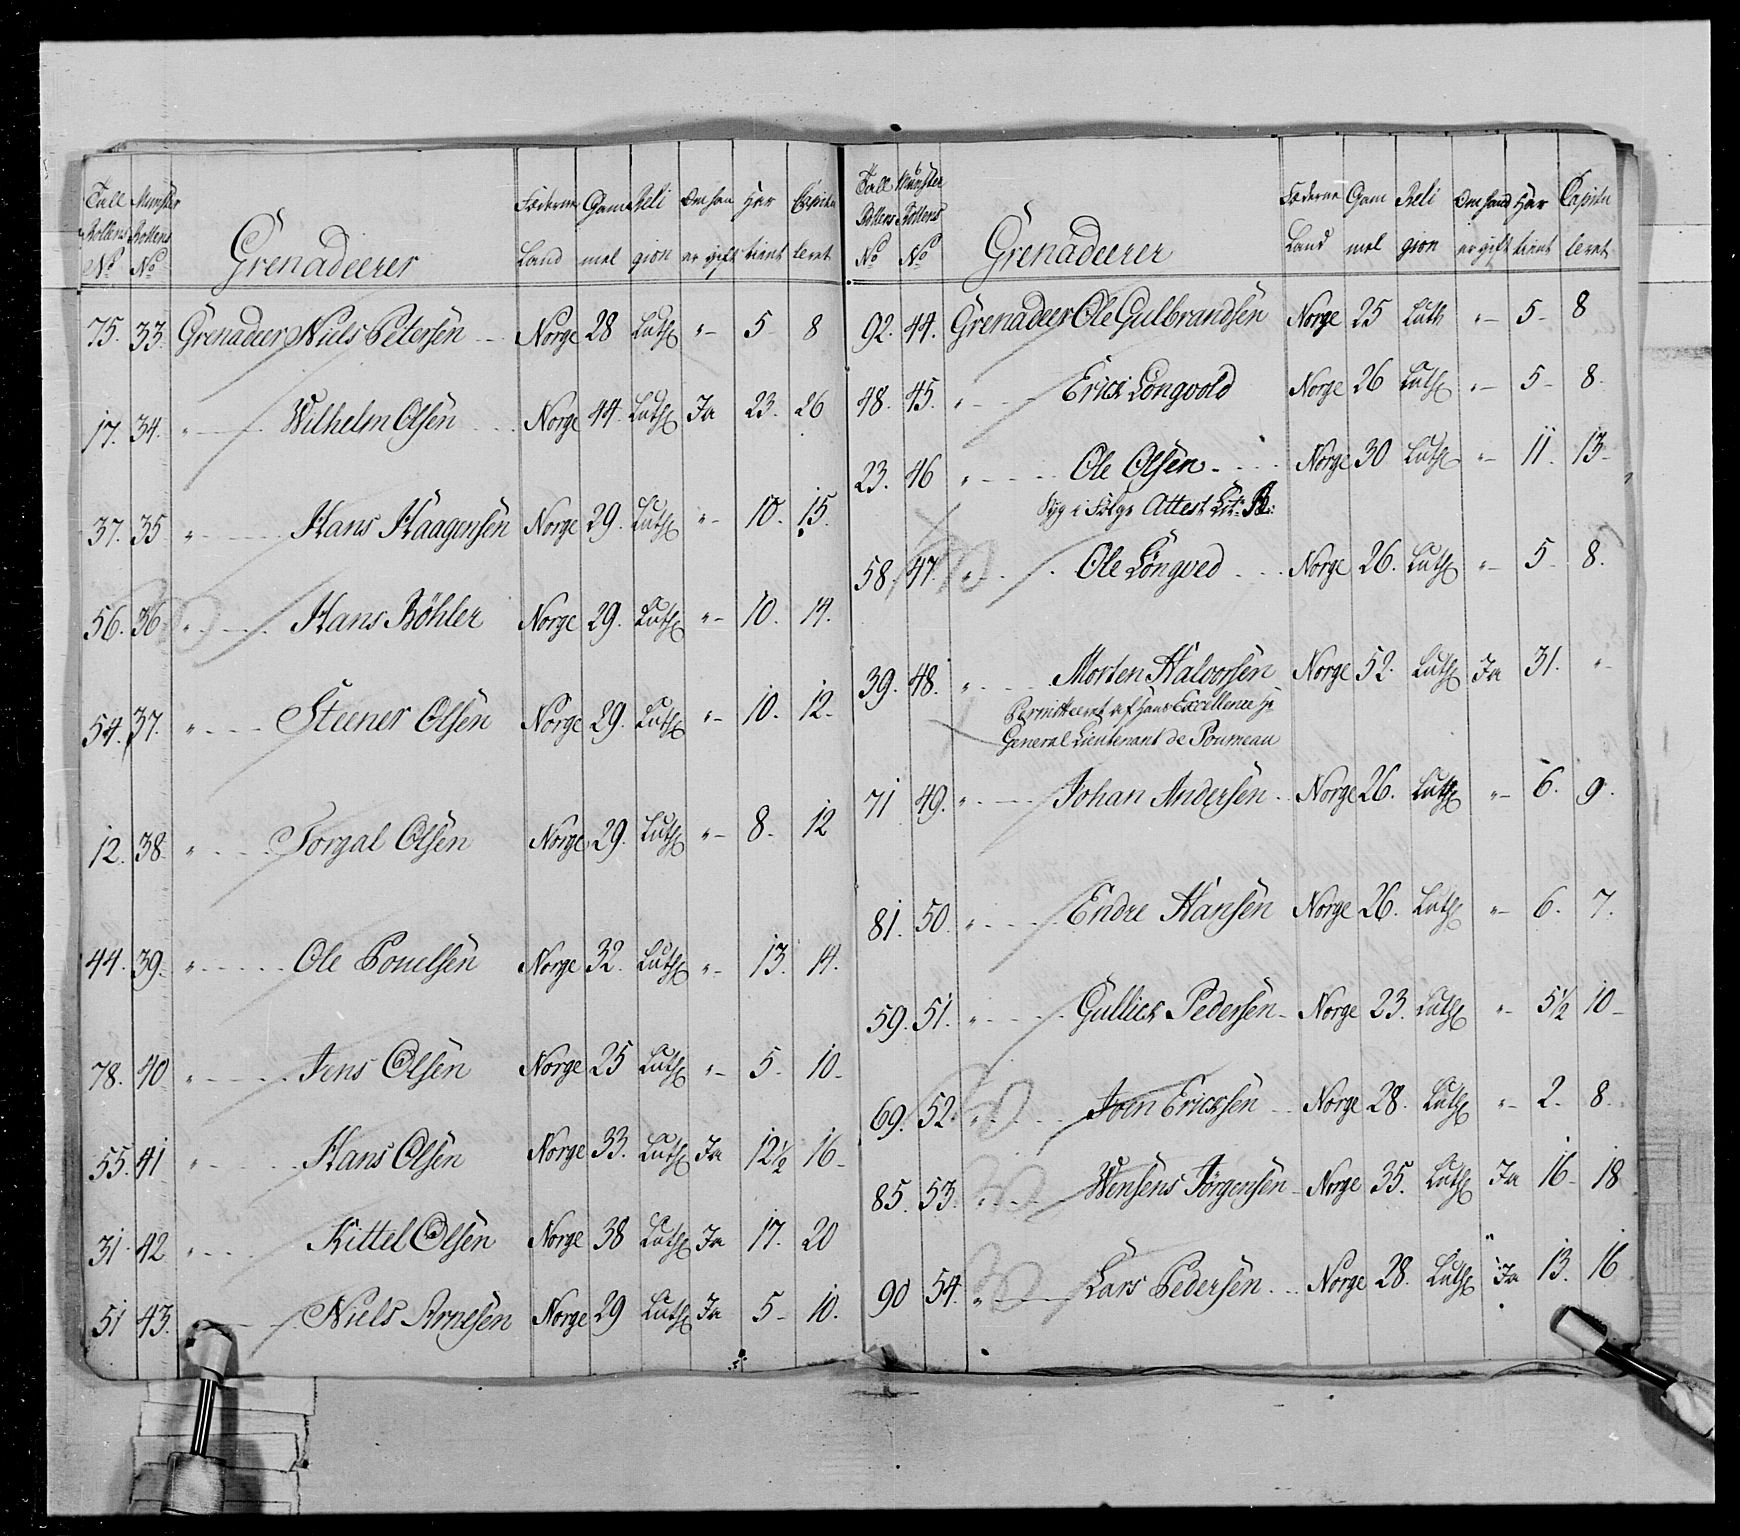 Tall Rollens No | Munster Rollens No | Grenadeerer | Fæderne Land | Gammel | Religion | Om han er gift | Har tient | Capituleret
75. 33. Grenadeer Niels Petersen Norge 28 Luth „- 5 8
17. 34. „ Wilhelm Olsen Norge 44 Luth Ja 23. 26
37. 35 „ Hans Haagensen Norge 29. Luth „- 10. 15.
56. 36 „ Hans Böhler Norge 29. Luth „- 10. 14.
54. 37. „ Steener Olsen Norge 29. Luth „- 10. 12.
12. 38. „ Torgal Olsen Norge 29. Luth „- 8. 12
44. 39. „ Ole Pouelsen Norge 32. Luth „- 13. 14.
78. 40 „ Jens Olsen Norge 25 Luth „- 5. 10.
55. 41 „ Hans Olsen Norge 33. Luth Ja 12½ 16
31. 42 „ Kittel Olsen Norge 38 Luth Ja 17. 20
51 43. Niels Arnesen Norge 29 Luth Ja 5- 10.
Tall Rollens No | Munster Rollens No | Grenadeerer | Fæderne Land | Gammel | Religion | Om hand er gift | Har tient | Capituleret
92. 44. Grenadeer Ole Gulbrandsen Norge 25 Luth „- 5- 8
48. 45. „ Erick Longvold Norge 26 Luth „- 5- 8.
23. 46 „ Ole Olsen Norge 30 Luth „- 11. 13-
Syg i Følge Attest Litr:
58. 47. „ Ole Löngved Norge 26. Luth „- 5- 8.
39. 48. „ Morten Halvorsen Norge 52. Luth Ja 31. „-
Permitteret af Hans Excellence Hr
General Lieutenant de Poumeau
71 49. „ Johan Andersen Norge 26. Luth „- 6. 9.
81. 50. „ Endre Hansen Norge 26. Luth „- 6. 7.
59. 51. „ Gullick Pedersen Norge 23. Luth „- 5½ 10-
69. 52. „ Joen Ericksen Norge 28. Luth „- 2. 8.
85. 53. „ Wensens Jörgensen Norge 35. Luth Ja 16- 18
90 54. „ Lars Pedersen Norge 28. Luth Ja 13. 16